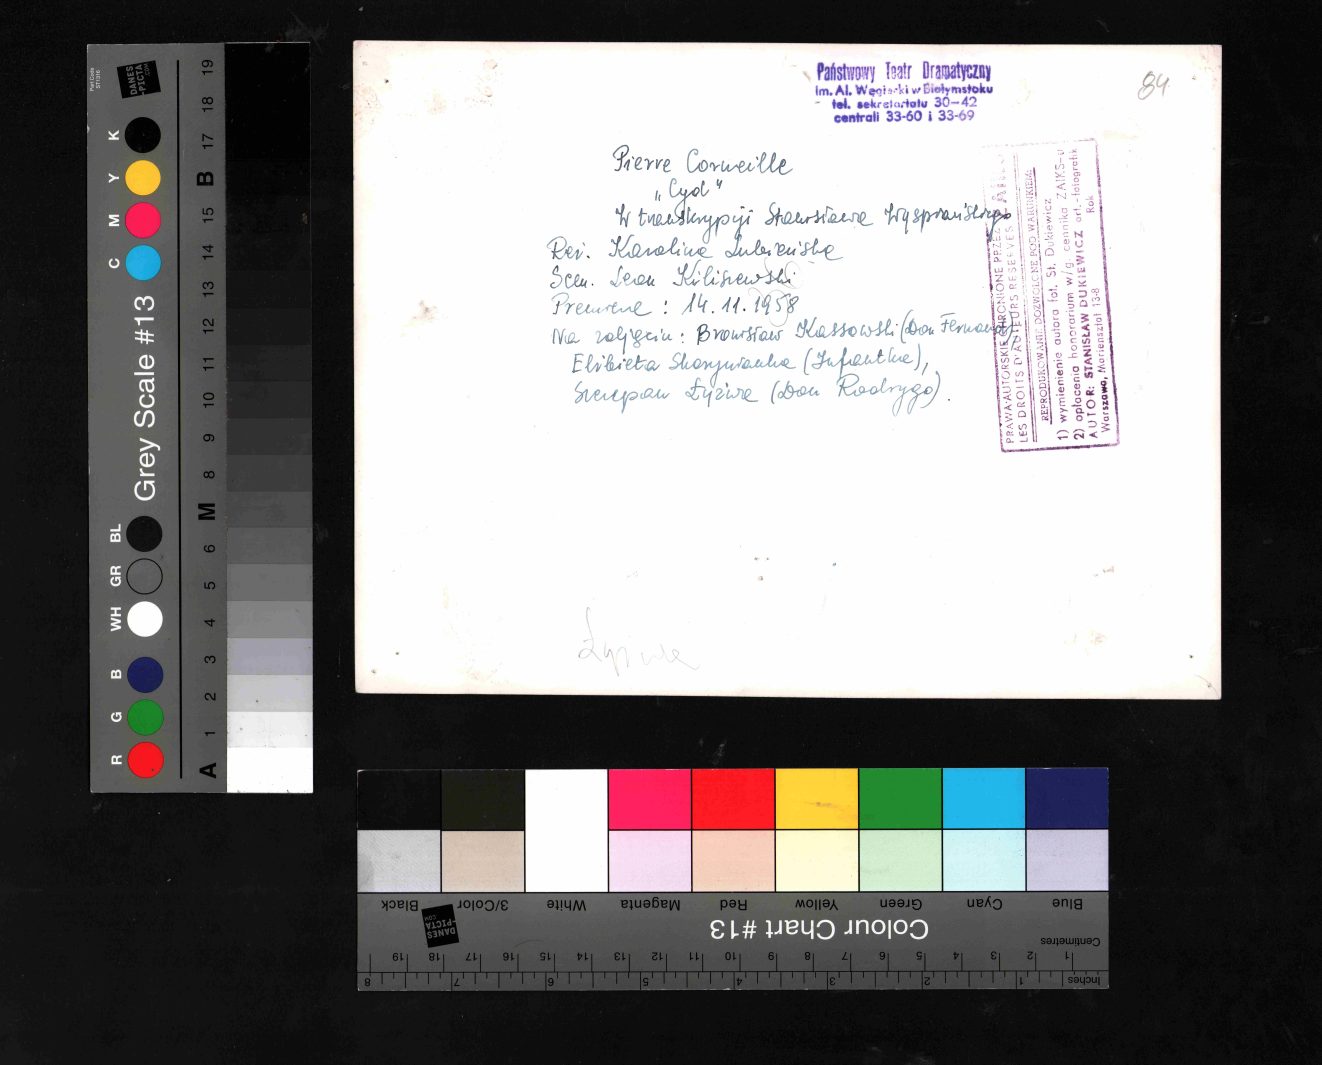 Państwowy Teatr Dramatyczny
im. Al. Węgierki w Białymstoku
tel. sekretariatu 30-42
centrali 33-60 i 33-69
84
Pierre Corneille
„Cyd"
W transkrypcji Stanisława Wyspiańskiego
Reż. Karolina Lubieńska
Scen. Leon Kiliszewski
Premiera: 14.11.1958
Na zdjęciu: Bronisław Kassowski (Don Fernand),
Elżbieta Skarżanka (Infantka),
Szczepan Łyżwa (Don Rodrygo).
Łyżwa
PRAWA AUTORSKIE CHRONIONE PRZEZ
LES DROITS D'AUTEURS RESERVES
REPRODUKOWANIE DOZWOLONE POD WARUNKIEM:
1) wymienienie autora fot. St. Dukiewicz
2) opłacenia honorarium w/g cennika ZAIKS-u
AUTOR: STANISŁAW DUKIEWICZ art.-fotografik
Warszawa, Mariensztat 13-8 Rok
DANES
-PICTA
.COM
Grey Scale #13
K
Y
M
C
BL
GR
WH
B
G
R
19
18
17
B
15
14
13
12
11
10
9
8
M
6
5
4
3
2
1
A
Black
3/Color
White
Magenta
Red
Yellow
Green
Cyan
Blue
DANES
-PICTA
.COM
Colour Chart #13
Centimetres
1 2 3 4 5 6 7 8 9 10 11 12 13 14 15 16 17 18 19
Inches
1 2 3 4 5 6 7 8